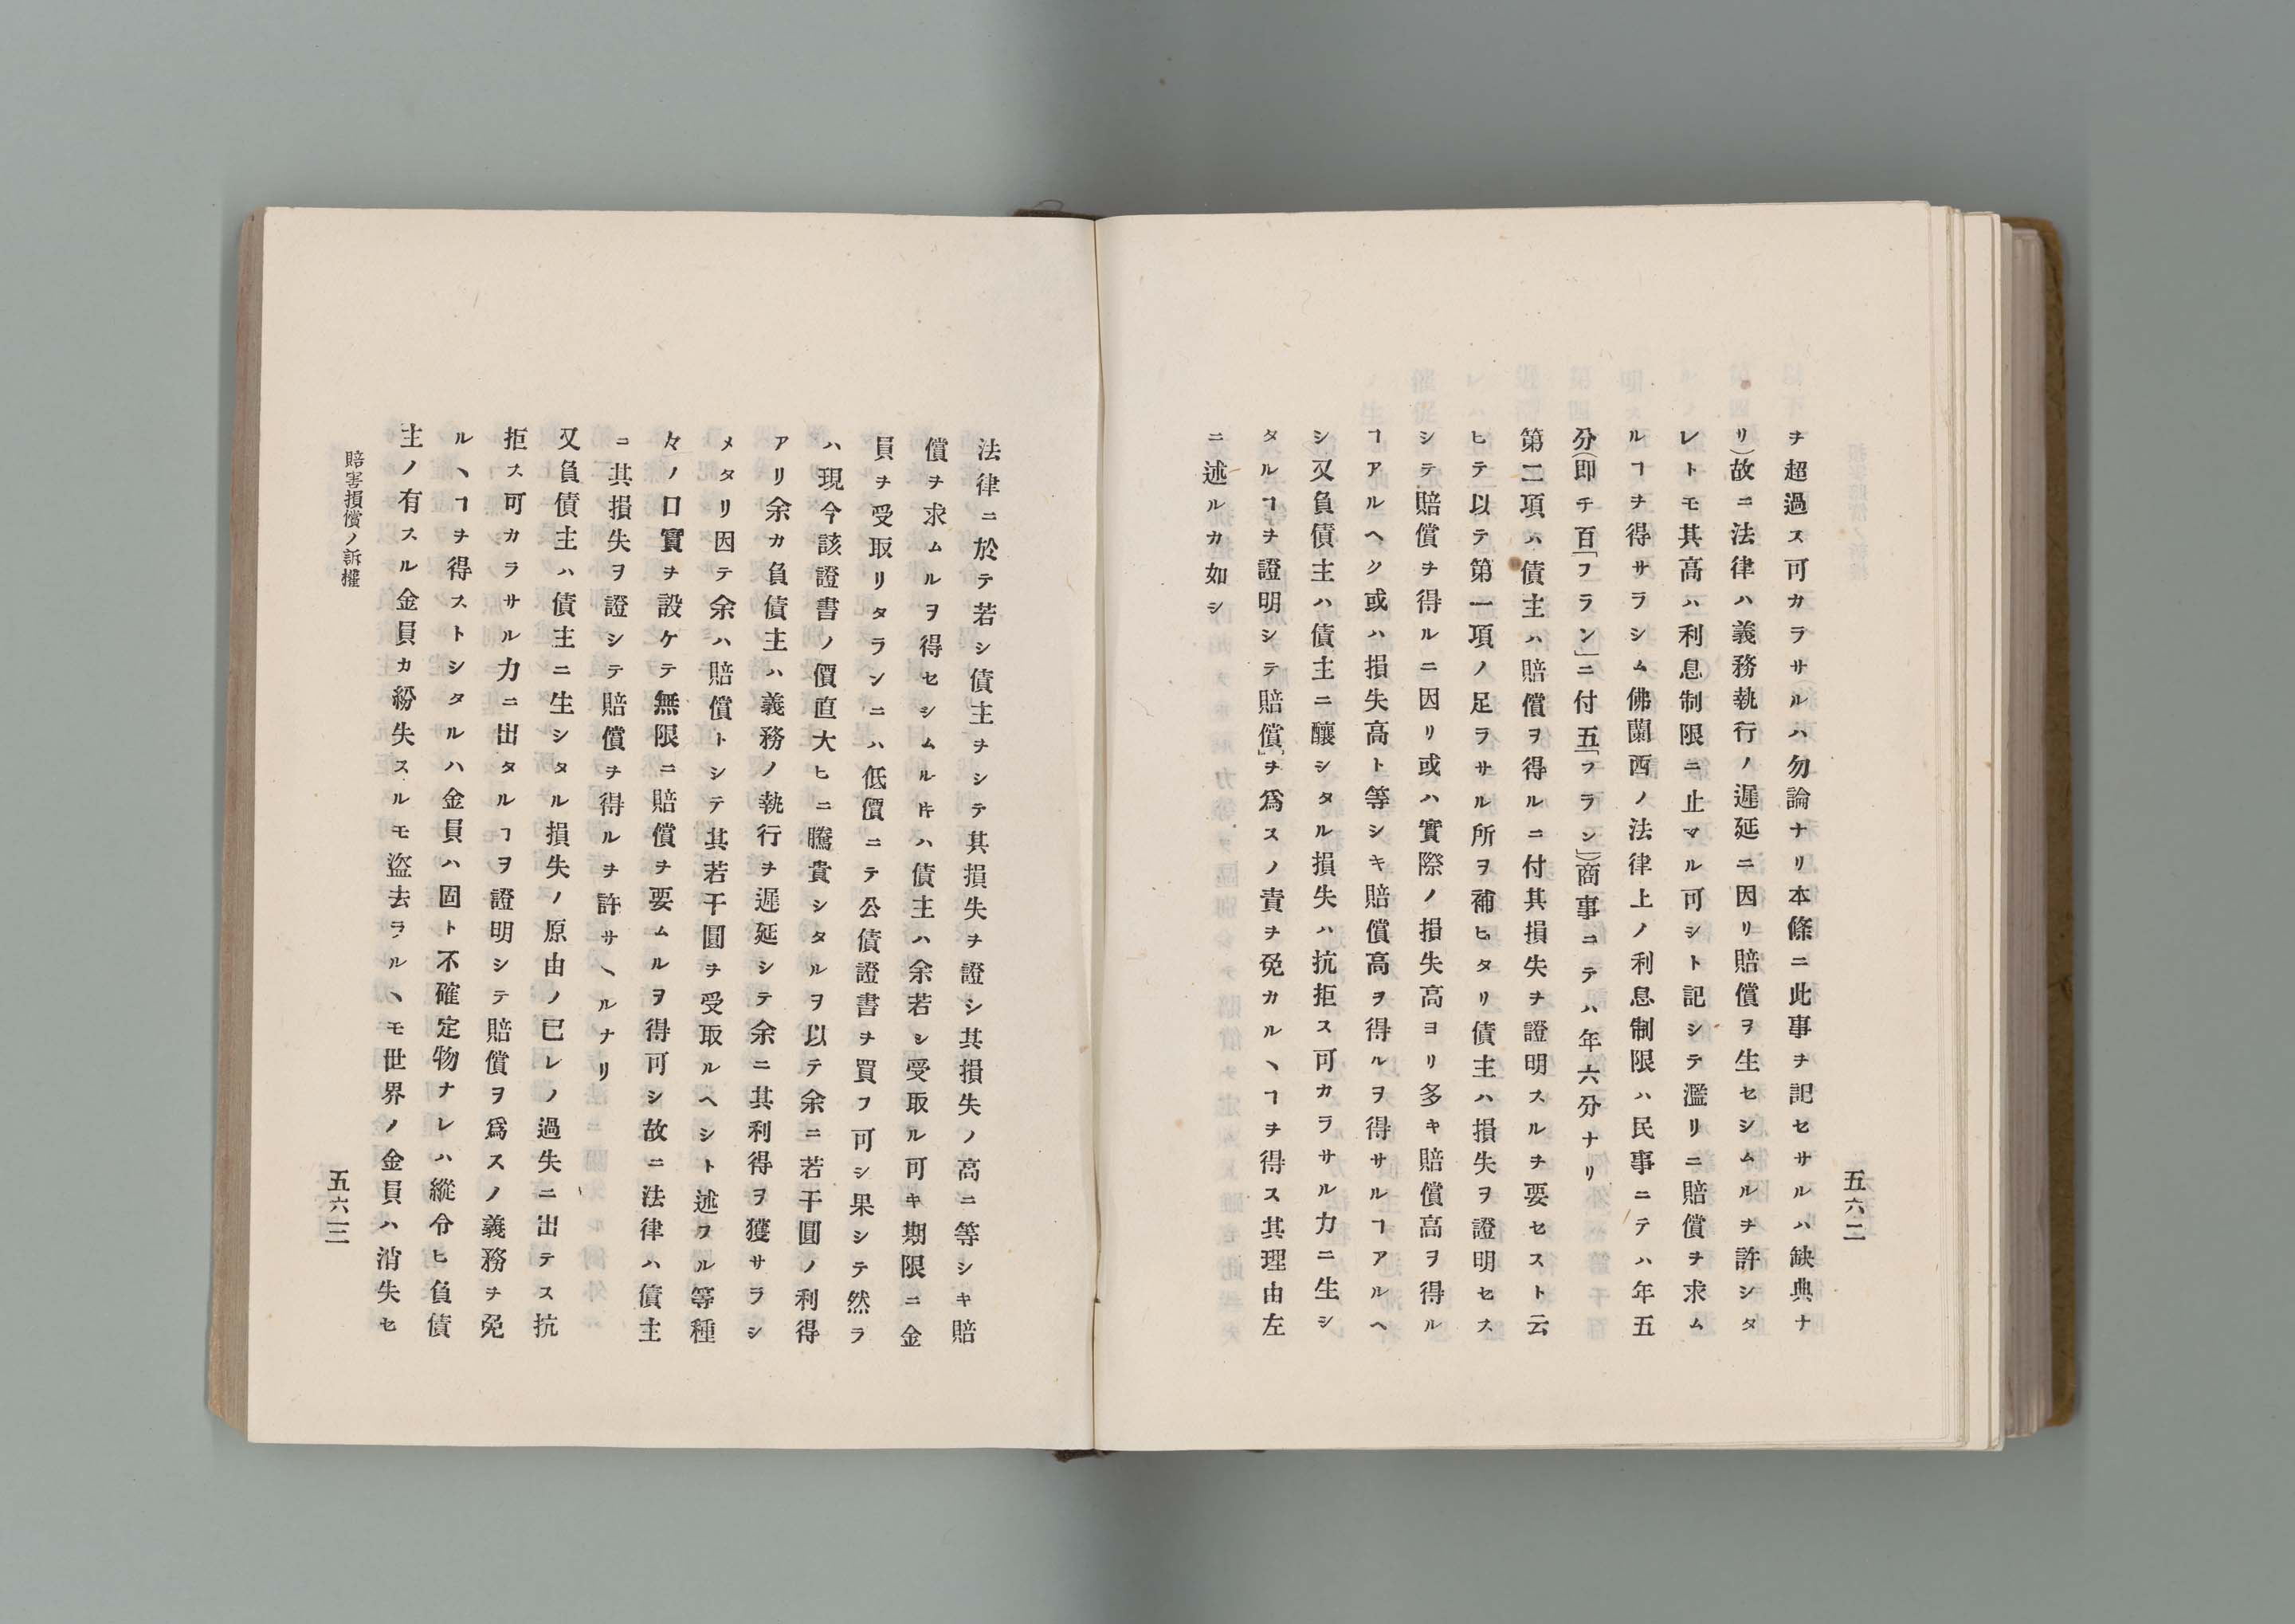 五六二
ヲ超過ス可カラサルハ勿論ナリ本條ニ此事ヲ記セサルハ缺典ナ
リ)故ニ法律ハ義務執行ノ遲延ニ因リ賠償ヲ生セシムルヲ許シタ
レトモ其高ハ利息制限ニ止マル可シト記シテ濫リニ賠償ヲ求ム
ルヿヲ得サラシム佛蘭西ノ法律上ノ利息制限ハ民事ニテハ年五
分(即チ百「フラン」ニ付五「フラン」)商事ニテハ年六分ナリ
第二項ハ債主ハ賠償ヲ得ルニ付其損失ヲ證明スルヲ要セスト云
ヒテ以テ第一項ノ足ラサル所ヲ補ヒタリ債主ハ損失ヲ證明セス
シテ賠償ヲ得ルニ因リ或ハ實際ノ損失高ヨリ多キ賠償高ヲ得ル
ヿアルヘク或ハ損失高ト等シキ賠償高ヲ得ルヲ得サルヿアルヘ
シ又負債主ハ債主ニ釀シタル損失ハ抗拒ス可カラサル力ニ生シ
タルヿヲ證明シテ賠償」ヲ爲スノ責ヲ免カルヽヿヲ得ス其理由左
ニ述ルカ如シ
法律ニ於テ若シ債主ヲシテ其損失ヲ證シ其損失ノ高ニ等シキ賠
償ヲ求ムルヲ得セシムル𪜈ハ債主ハ余若シ受取ル可キ期限ニ金
員ヲ受取リタランニハ低價ニテ公債證書ヲ買フ可シ果シテ然ラ
ハ現今該證書ノ價直大ヒニ騰貴シタルヲ以テ余ニ若干圓ノ利得
アリ余カ負債主ハ義務ノ執行ヲ遲延シテ余ニ其利得ヲ獲サラシ
メタリ因テ余ハ賠償トシテ其若干圓ヲ受取ルヘシト述フル等種
々ノ口實ヲ設ケテ無限ニ賠償ヲ要ムルヲ得可シ故ニ法律ハ債主
ニ其損失ヲ證シテ賠償ヲ得ルヲ許サヽルナリ
又負債主ハ債主ニ生シタル損失ノ原由ノ已レノ過失ニ出テス抗
拒ス可カラサル力ニ出タルヿヲ證明シテ賠償ヲ爲スノ義務ヲ免
ルヽヿヲ得ストシタルハ金員ハ固ト不確定物ナレハ縱令ヒ負債
主ノ有スル金員カ紛失スルモ盜去ラルヽモ世界ノ金員ハ消失セ
賠害損償ノ訴權
五六三